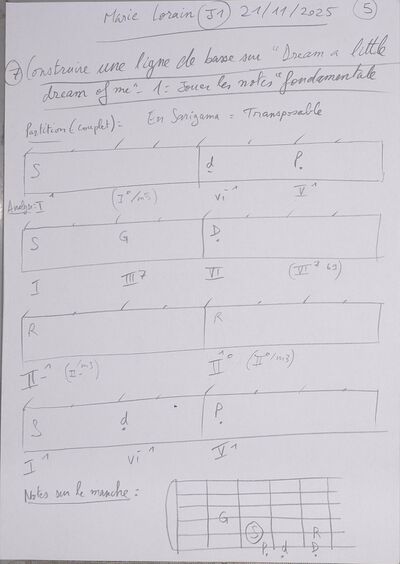 Marie Lorain J1 21/11/2025 5
7) Construire une ligne de basse sur "Dream a little
dream of me" - 1 = Jouer les notes "fondamentale
Partition (couplet) = En Sarigama = Transposable
S d P
Analyse = I¹ (I°/m3) vi⁻¹ V¹
S G D
I III⁷ VI (VI⁷ b9)
R R
II⁻¹ (II⁻/m3) II¹° (II°/m3)
S d P
I¹ vi⁻¹ V¹
Notes sur le manche =
G
S R
P d D